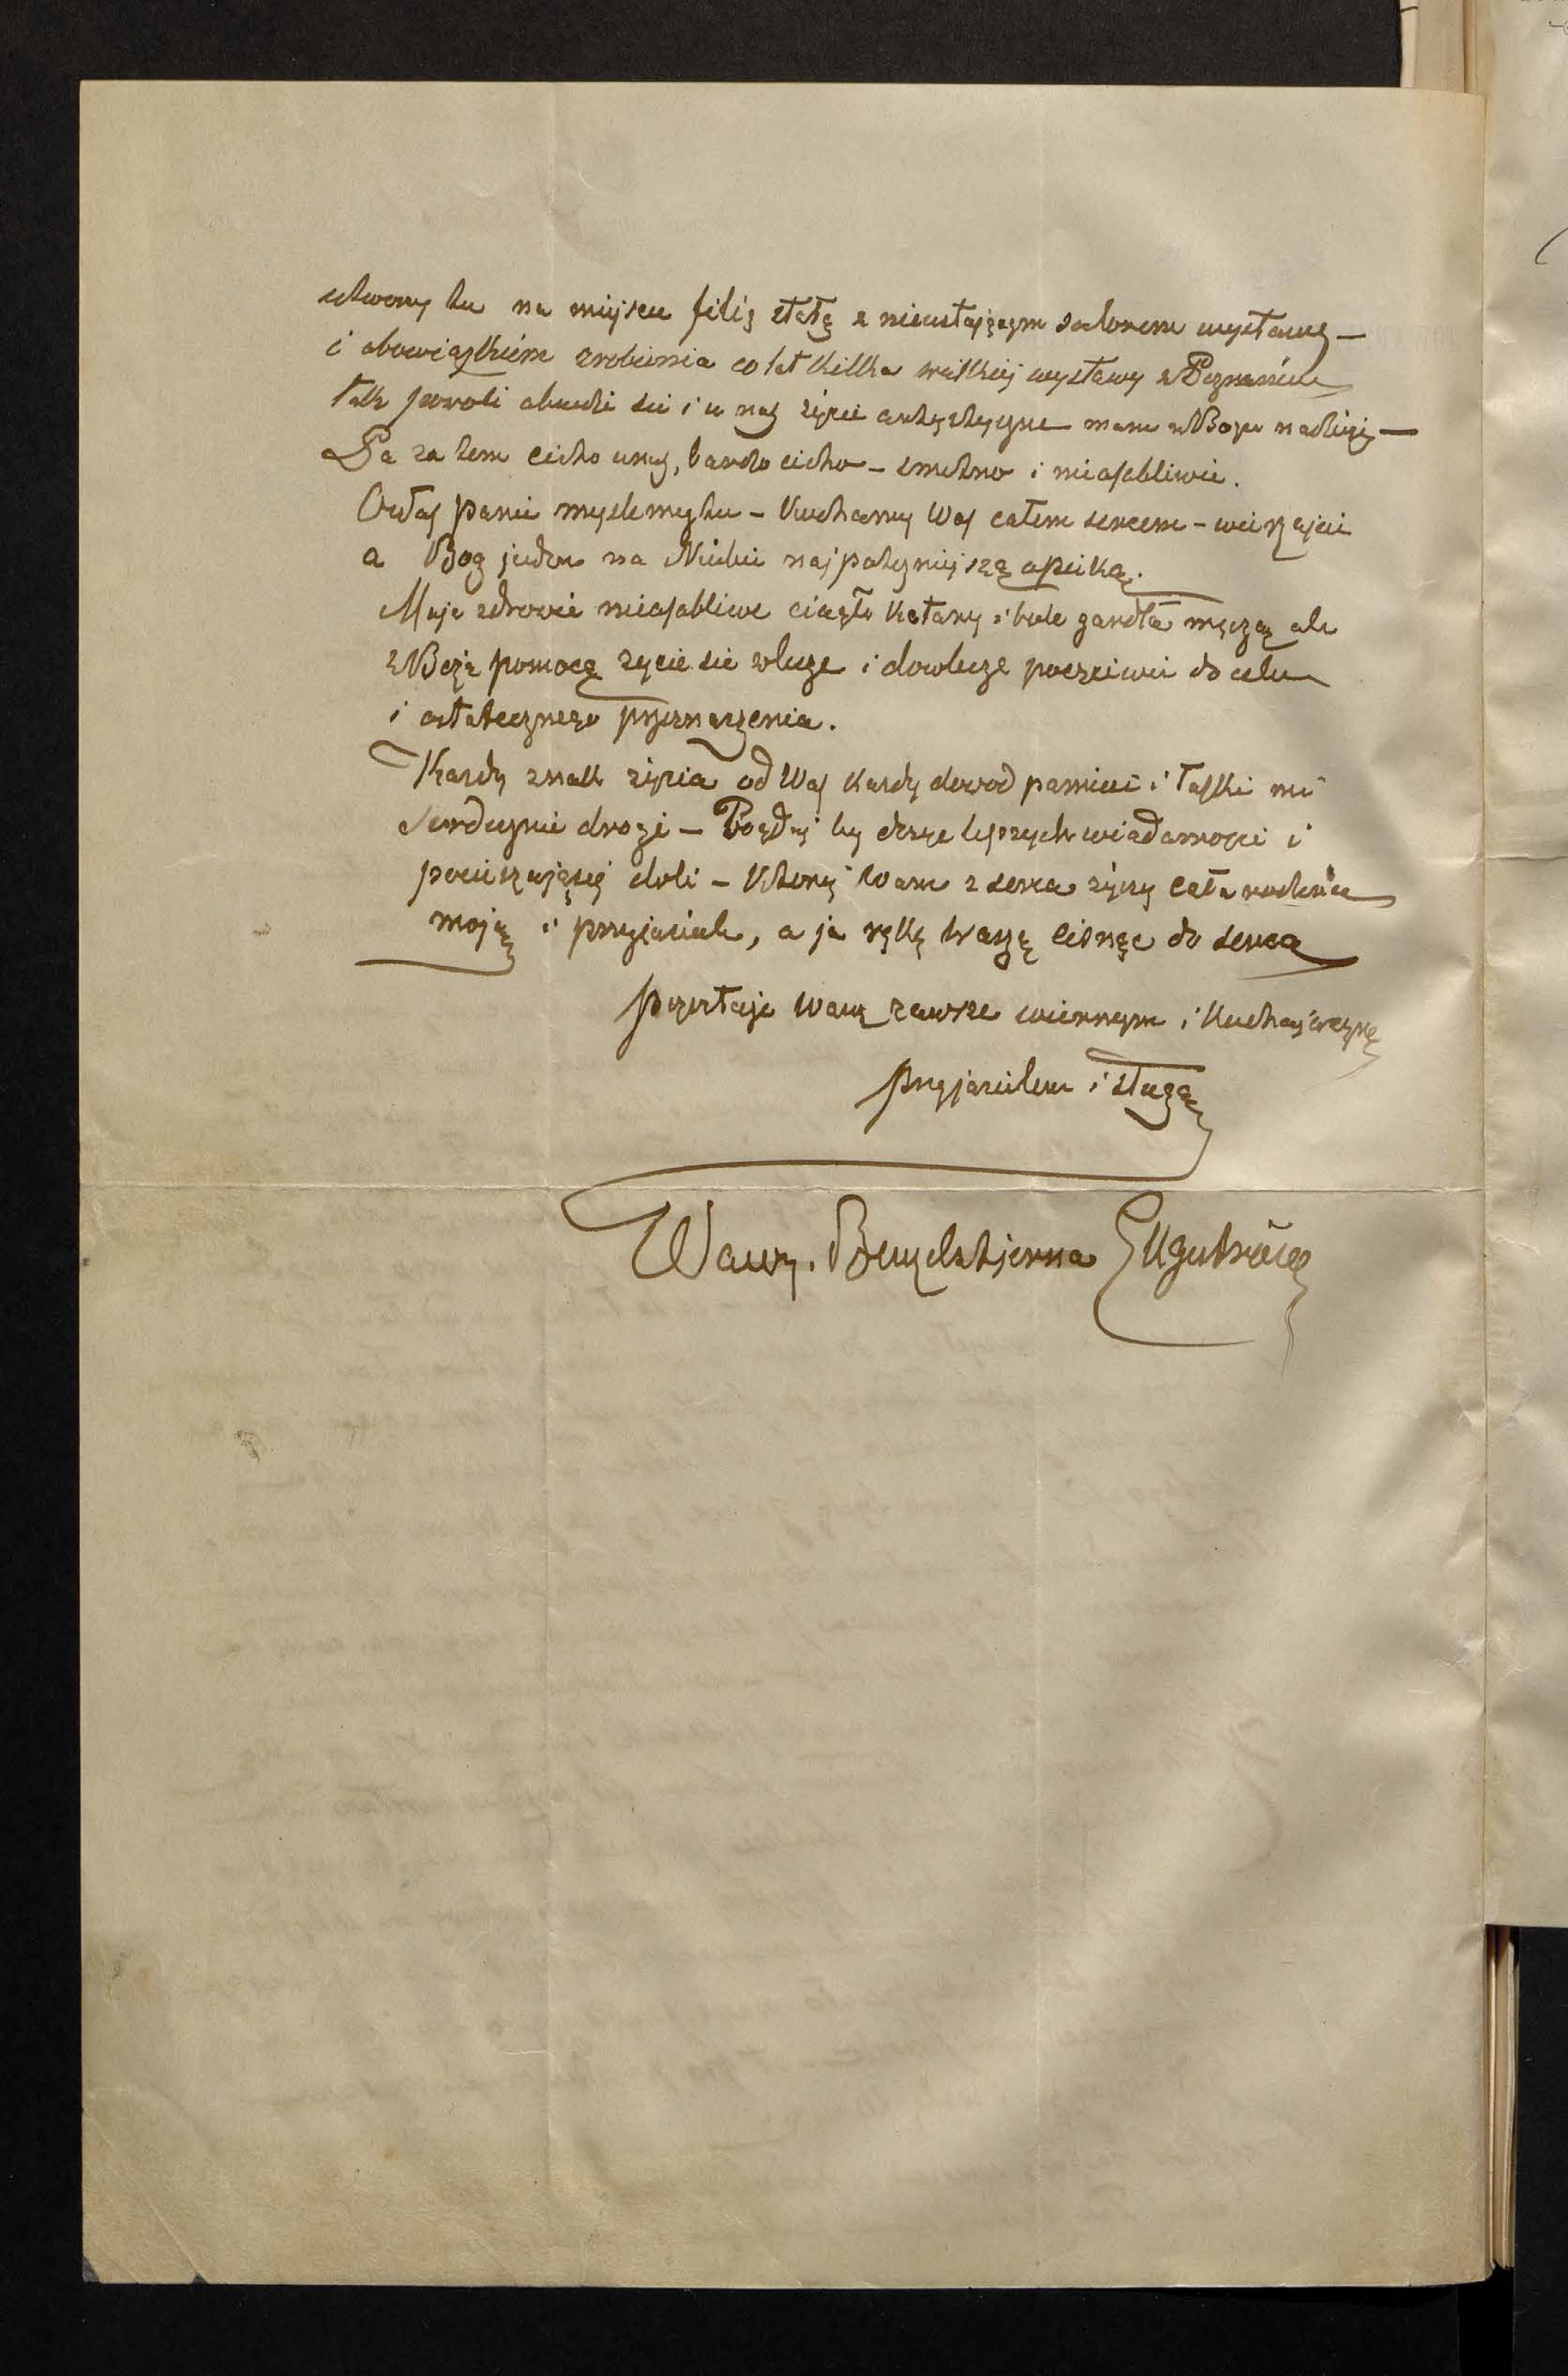 utworzy tu na miejscu filię stałą z nieustającym salonem wystawy —
i obowiązkiem zrobienia co lat kilka wielkiej wystawy w Poznaniu
Tak powoli obudzi sie i u nas życie artystyczne mam w Bogu nadzieję —
Po za tem cicho u nas, bardzo cicho – smutno i nieosobliwie.
O Was Panie myslemy tu – Kochamy Was całem sercem –
a Bog jeden na Niebie najpotęzniejszą opieką.
Moje zdrowie nieosobliwe ciągłe katary i bole gardła męczą ale
z Bożą pomocą zycie sie wlecze i dowlecze poczciwie do celu
i ostatecznego przeznaczenia.
Kazdy znak życia od Was kazdy dowod pamieci i łaski mi
serdecznie drogi – Bogdaj by doszłe lepszych wiadamosci i
pocieszającej doli – Ktorej Wam z serca życzy cała rodzina
moja i przyjaciele, a ja rękę Waszę cisnąc do serca
pozostaje Wam zawsze wiernym i Kochającym
przyjacielem i sługą
Wawrz. Benzelstjerna Engeström